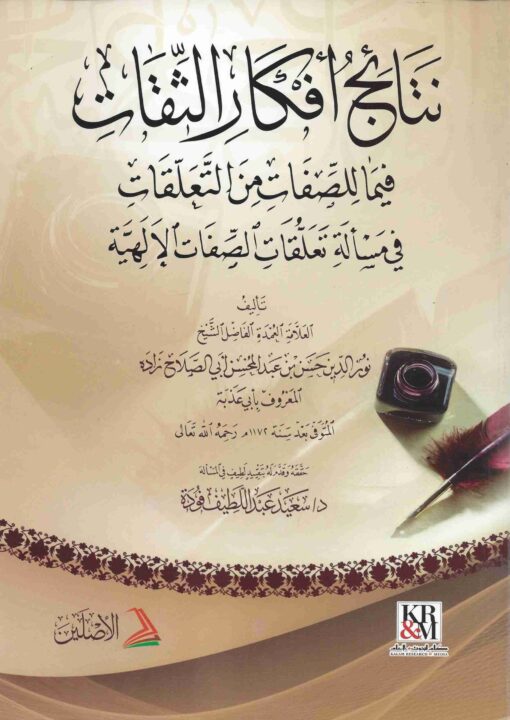 نَتَائِجُ أَفْكَارِ الثِّقَاتِ
فِيمَا لِلصِّفَاتِ مِنَ التَّعَلُّقَاتِ
فِي مَسْأَلَةِ تَعَلُّقَاتِ الصِّفَاتِ الإِلَهِيَّةِ
تأليف
العلامة العمدة الفاضل الشيخ
نور الدين حسن بن عبد المحسن أبي الصلاح زاده
المعروف بأبي عذبة
المتوفى بعد سنة ١١٧٢ه رحمه الله تعالى
حققه وقدم له بتقييد لطيف في المسألة
د/ سعيد عبد اللطيف فودة
الأصلين
KR
&M
كلام للبحوث والإعلام
KALAM RESEARCH & MEDIA